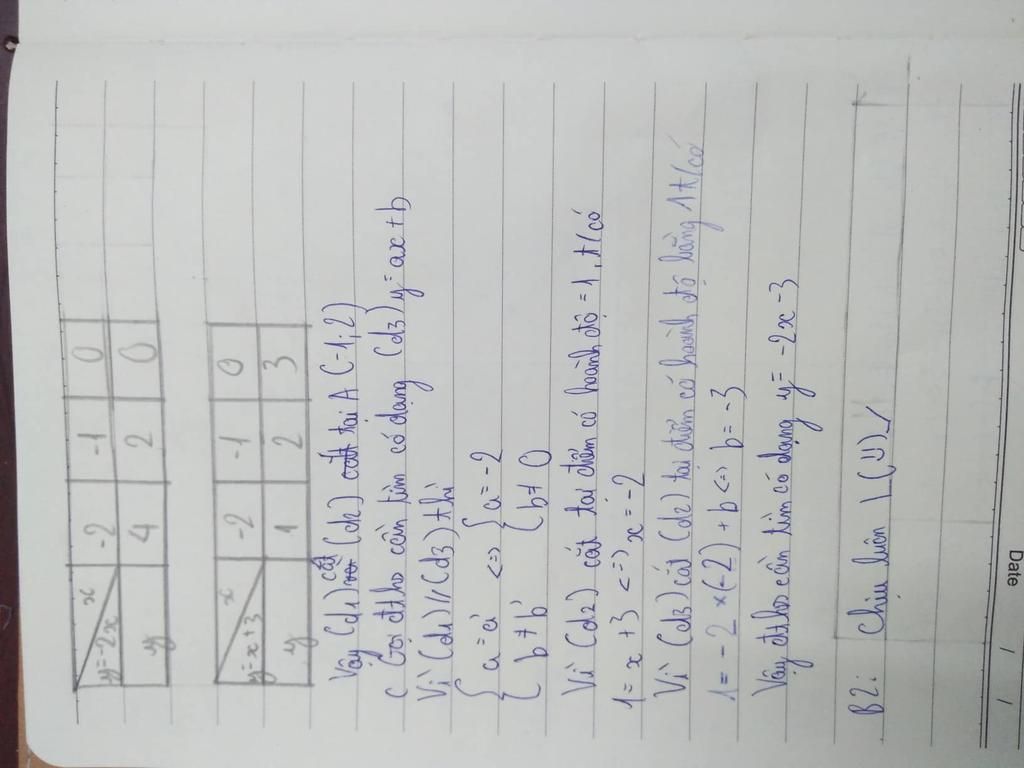 x -2 -1 0
y=-2x
y 4 2 0
x -2 -1 0
y=x+3
y 1 2 3
Vậy (d1) cắt (d2) tại A (-1;2)
c Gọi đtho cần tìm có dạng (d3) y=ax+b
Vì (d1)//(d3) thì
{ a=a' <=> { a=-2
{ b≠b' { b≠0
Vì (d2) cắt tại điểm có hoành độ=1, t/có
1=x+3 <=> x=-2
Vì (d3) cắt (d2) tại điểm có hoành độ bằng 1 t/có
1=-2×(-2)+b <=> b=-3
Vậy đtho cần tìm có dạng y=-2x-3
B2: chịu luôn \_(ii)_/
Date / /